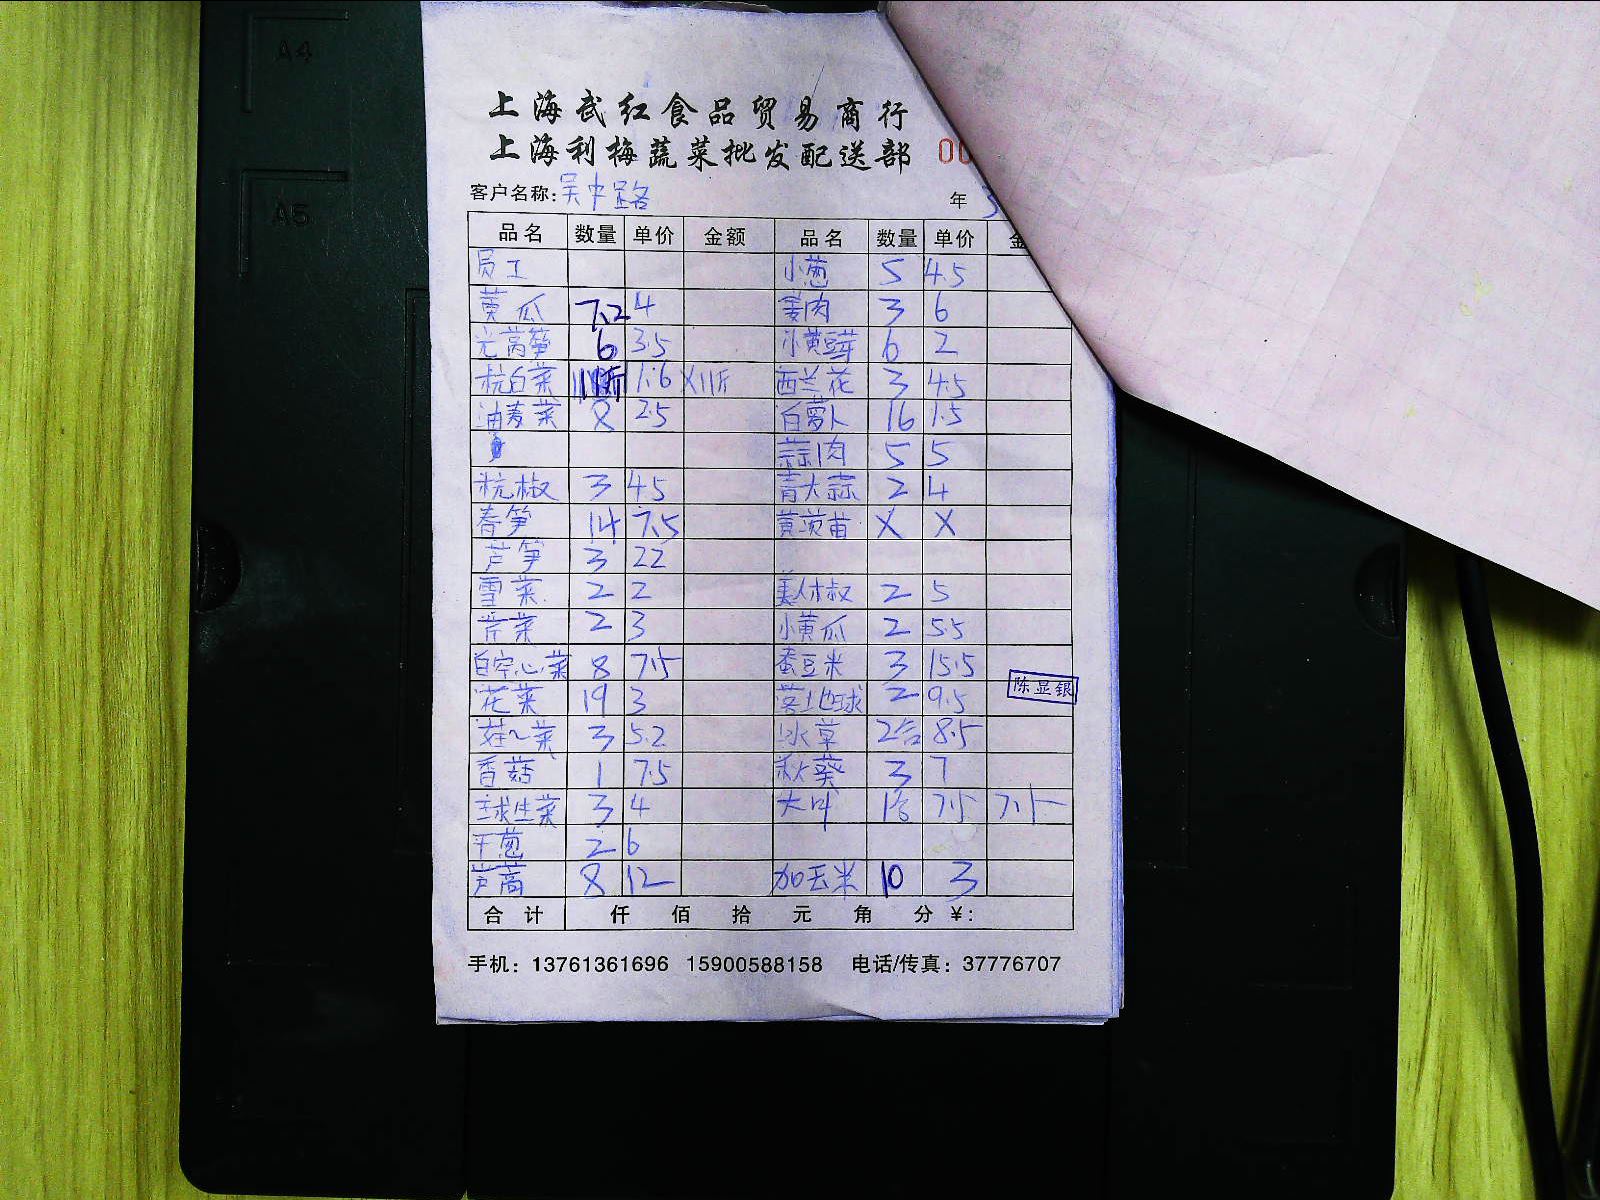 A4
A5
上海武红食品贸易商行
上海利梅蔬菜批发配送部 00
客户名称: 吴中路 年 3
品名 数量 单价 金额 品名 数量 单价
员工 小葱 5 4.5
黄瓜 7.2 4 姜肉 3 6
光莴笋 6 3.5 小黄豆芽 6 2
杭白菜 1.6 X11斤 西兰花 3 4.5
油麦菜 8 2.5 白萝卜 16 1.5
蒜肉 5 5
杭椒 3 4.5 青大蒜 2 4
春笋 14 7.5 X X
芦笋 3 22
雪菜 2 2 美人椒 2 5
芹菜 2 3 小黄瓜 2 5.5
白空心菜 8 7.5 蚕豆米 3 15.5
花菜 19 3 2 9.5 陈显银
娃~菜 3 5.2 冰草 2合 8.5
香菇 1 7.5 秋葵 3 7
球生菜 3 4 大叶 7.5 7.5
平葱 2 6
芦蒿 8 12 加玉米 10 3
合计 仟 佰 拾 元 角 分 ¥:
手机: 13761361696 15900588158 电话/传真: 37776707